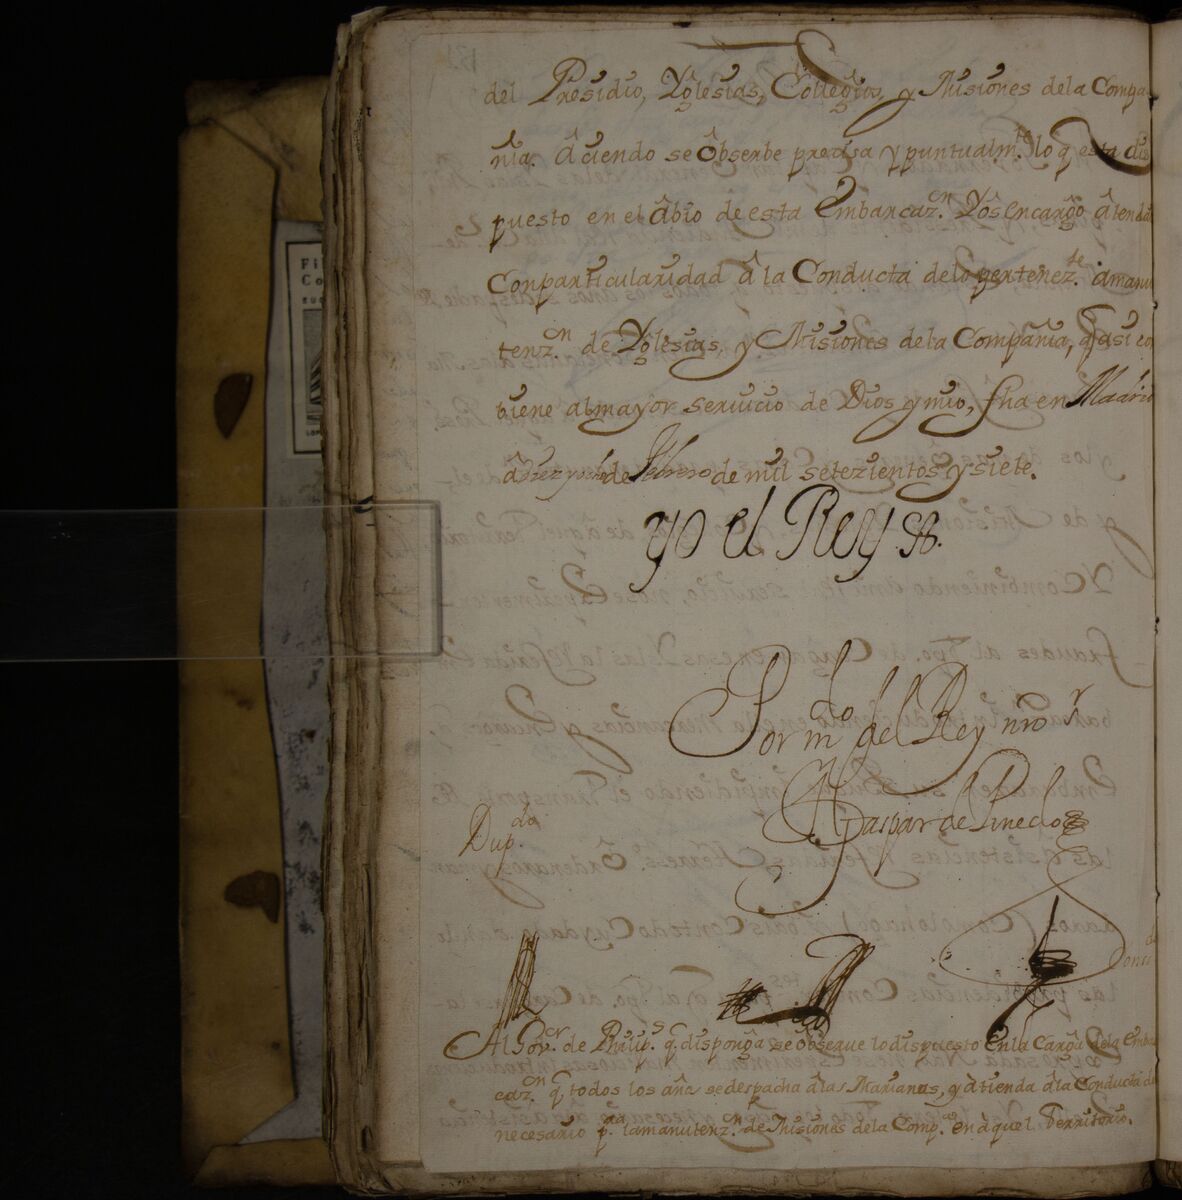 del Presidio, Yglesias, Collegios, y Misiones dela Compa
ñia. Aciendo se observe precisa y puntualm.te lo q esta dis
puesto en el abio de esta Embarcaz.on Y os encargo atendais
Conparticularidad a la Conducta delo pertenez.te amanu
tenz.on de Yglesias, y Misiones dela Compañia, q asi co
biene almayor servicio de Dios y mio, fha en Madrid
a diez y de Febrero de mil setezientos y siete.
yo el Rey
Por m.do del Rey nro s.r
Gaspar de Pinedo
Dup.do
Al Gov.or de Philip.s q. disponga se observe lo dispuesto en la Carga dela Embar
caz.on q todos los años se despacha alas Marianas, y atienda ala Conducta de
necesario p.ra la manutenz.on de Misiones dela Comp.a en aquel Territorio.
Fi
Co